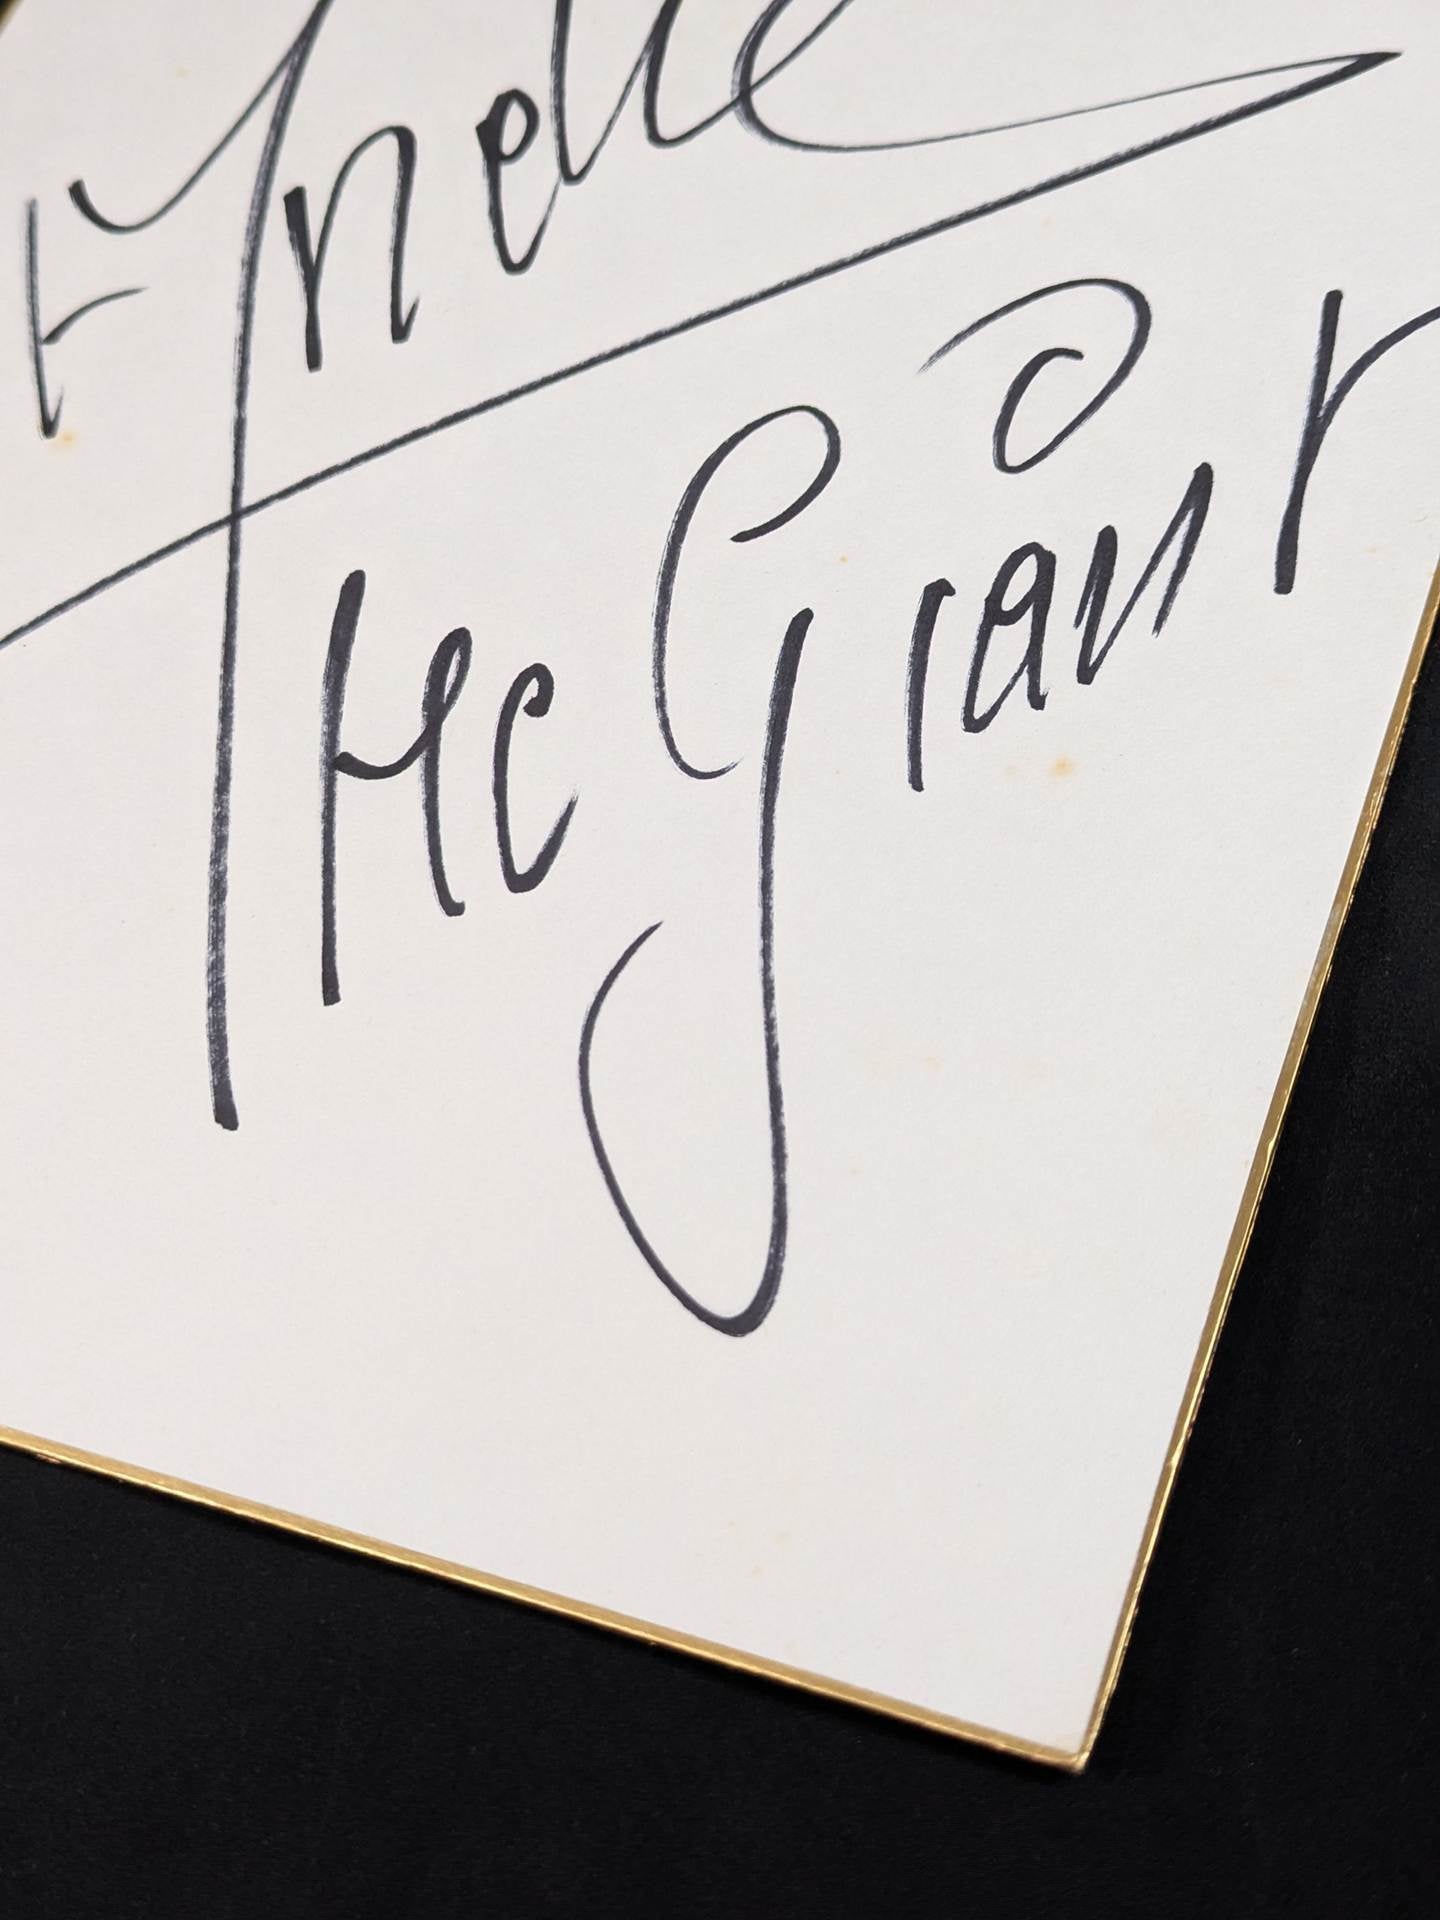 Andre
The Giant